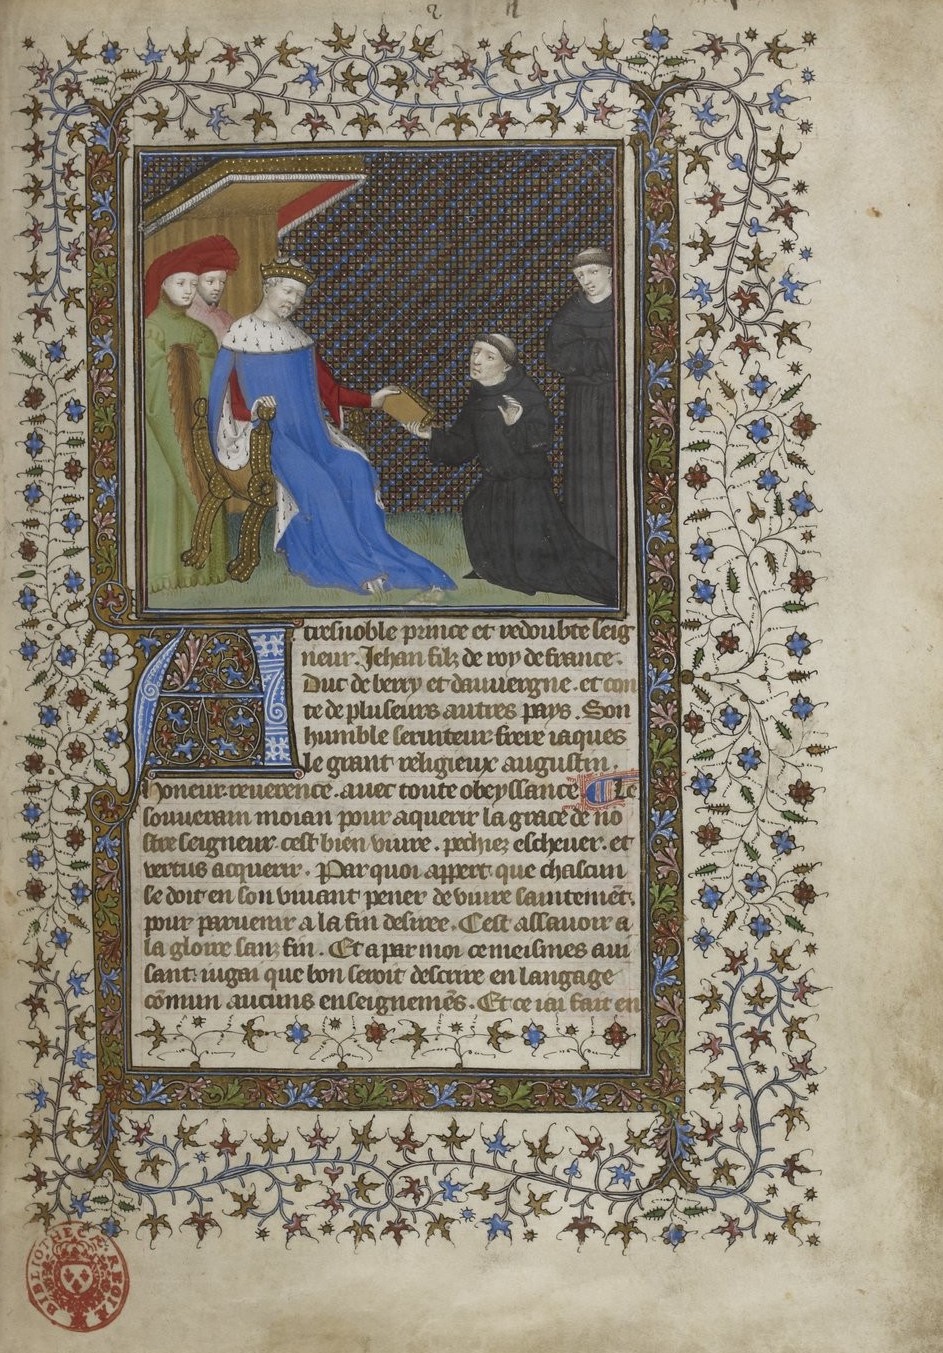 A tresnoble prince et redoubte seig
neur. Jehan filz de roy de france.
Duc de berry et dauuergne. et con
te de pluseurs autres pays. Son
humble seruiteur frere iaques
le grant religieux augustin.
honeur reuerence. auec toute obeyssance Le
souuerain moian pour aquerir la grace de no
stre seigneur cest bien viure. pechiez escheuer. et
vertus acquerir. Par quoi appert que chascun
se doit en son viuant pener de viure saintemēt.
pour paruenir a la fin desiree. Cest assauoir a
la gloire sanz fin. Et a par moi ce meismes aui
sant iugai que bon seroit descrire en langage
cōmun aucuns enseignemēs. Et ce iai fait en
BIBLIOTHECÆ REGIÆ